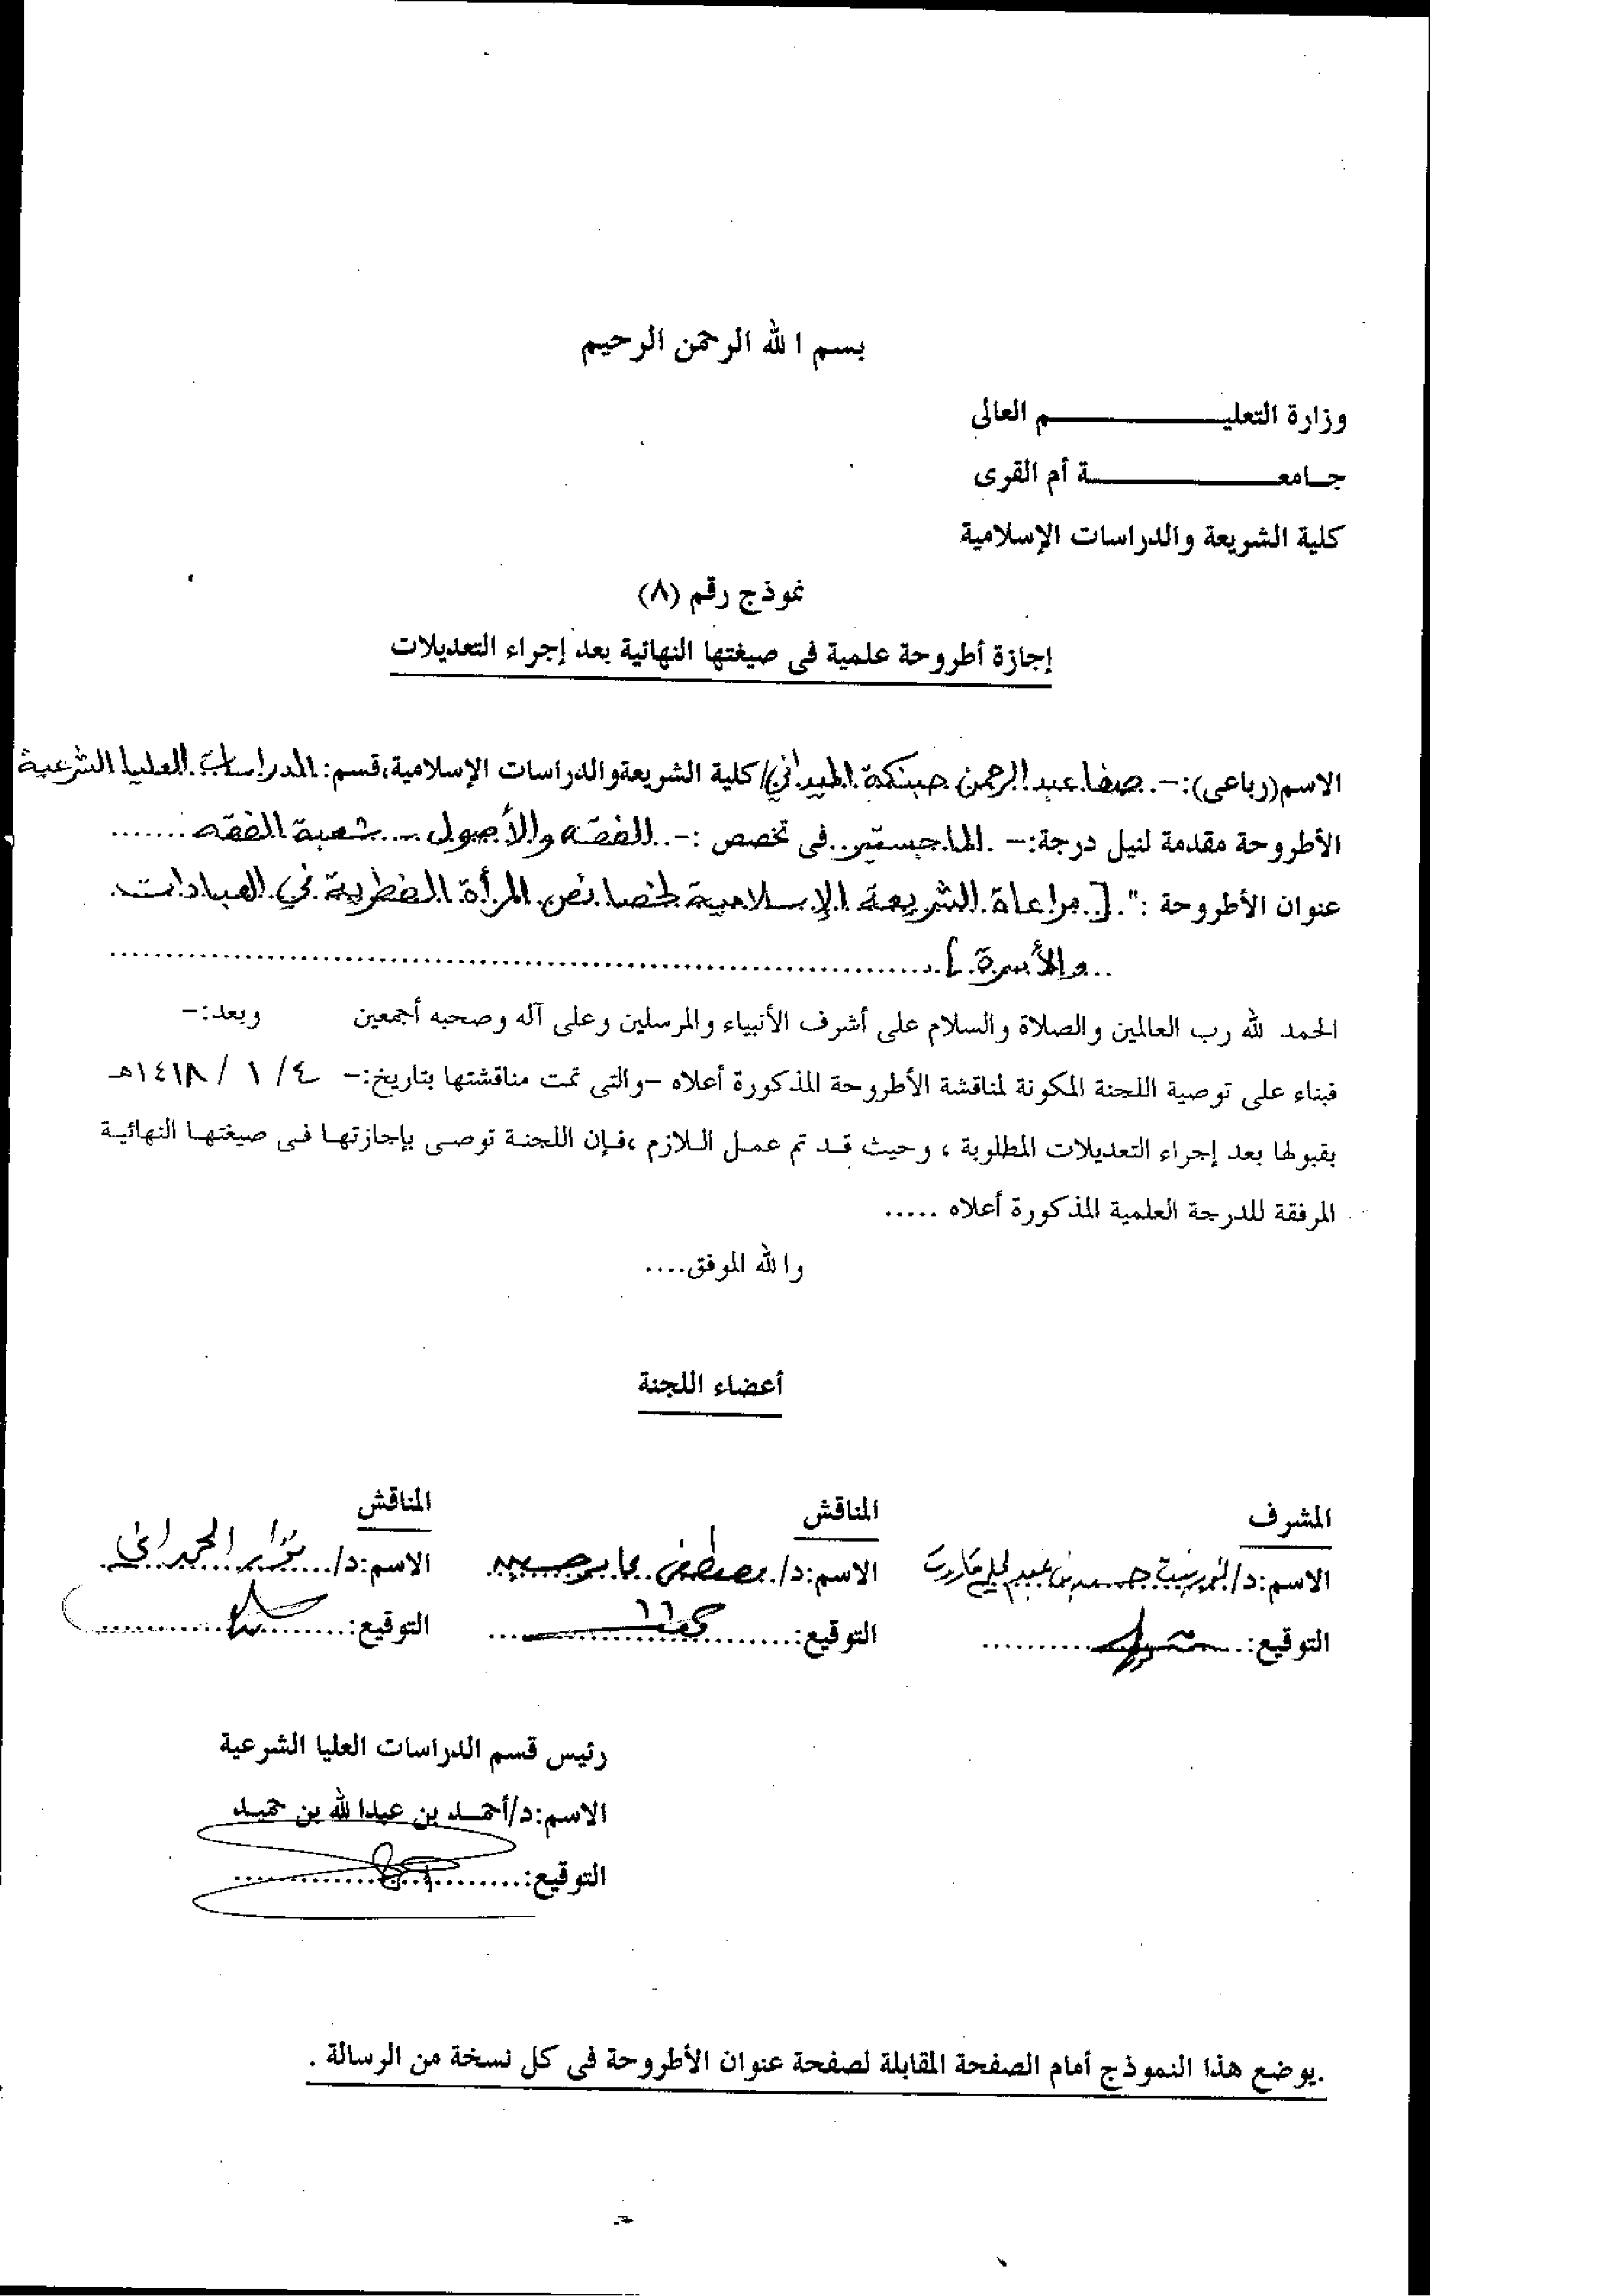 بسم الله الرحمن الرحيم
وزارة التعليـــــــــم العالى
جـامعـــــــــة أم القرى
كلية الشريعة والدراسات الإسلامية
نموذج رقم (٨)
إجازة أطروحة علمية فى صيغتها النهائية بعد إجراء التعديلات
الاسم(رباعى):- صفا عبد الرحمن حبنكة الميداني/ كلية الشريعة والدراسات الإسلامية،قسم: الدراسات العليا الشرعية
الأطروحة مقدمة لنيل درجة:- الماجستير..فى تخصص :-..الفقه والأصول – شعبة الفقه.......
عنوان الأطروحة :".[ مراعاة الشريعة الإسلامية لخصائص المرأة الفطرية في العبادات.
..والأسرة ]......
الحمد لله رب العالمين والصلاة والسلام على أشرف الأنبياء والمرسلين وعلى آله وصحبه أجمعين وبعد:-
فبناء على توصية اللجنة المكونة لمناقشة الأطروحة المذكورة أعلاه -والتى تمت مناقشتها بتاريخ:- ٤ / ١ / ١٤١٨هـ
بقبولها بعد إجراء التعديلات المطلوبة ، وحيث قـد تم عمـل الـلازم ،فـإن اللجنـة توصـى بإجازتهـا فـى صيغتهـا النهائيـة
المرفقة للدرجة العلمية المذكورة أعلاه .....
والله الموفق....
أعضاء اللجنة
المشرف المناقش المناقش
الاسم:د/ الاسم:د/ مصطفى الاسم:د/
التوقيع: التوقيع: التوقيع:
رئيس قسم الدراسات العليا الشرعية
الاسم:د/أحمـد بن عبدالله بن حميـد
التوقيع:
.يوضع هذا النموذج أمام الصفحة المقابلة لصفحة عنوان الأطروحة فى كل نسخة من الرسالة .